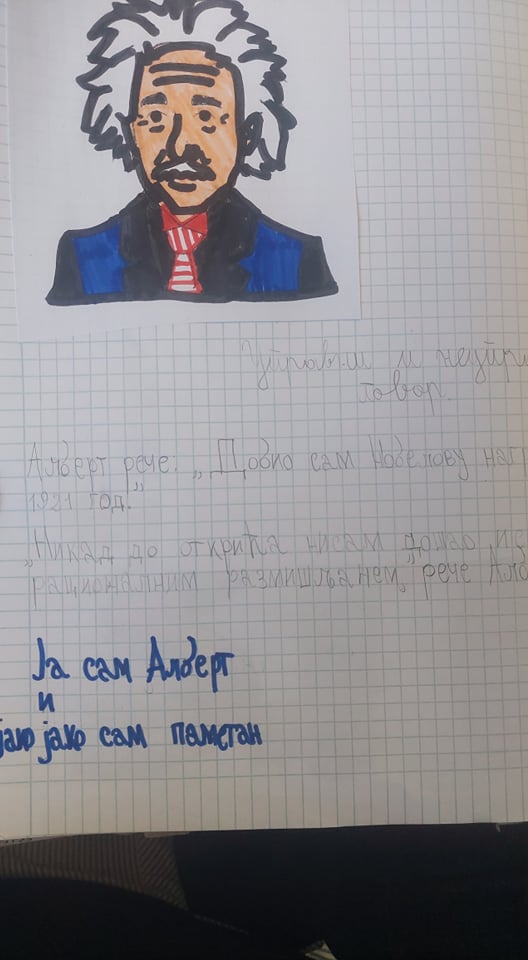 Управни и неупра
говор.
Алберт рече: „Добио сам Нобелову наг
1921 год.”
„Никад до открића нисам дошао
рационалним размишљањем,” рече Алб
Ја сам Алберт
и
јако јако сам паметан